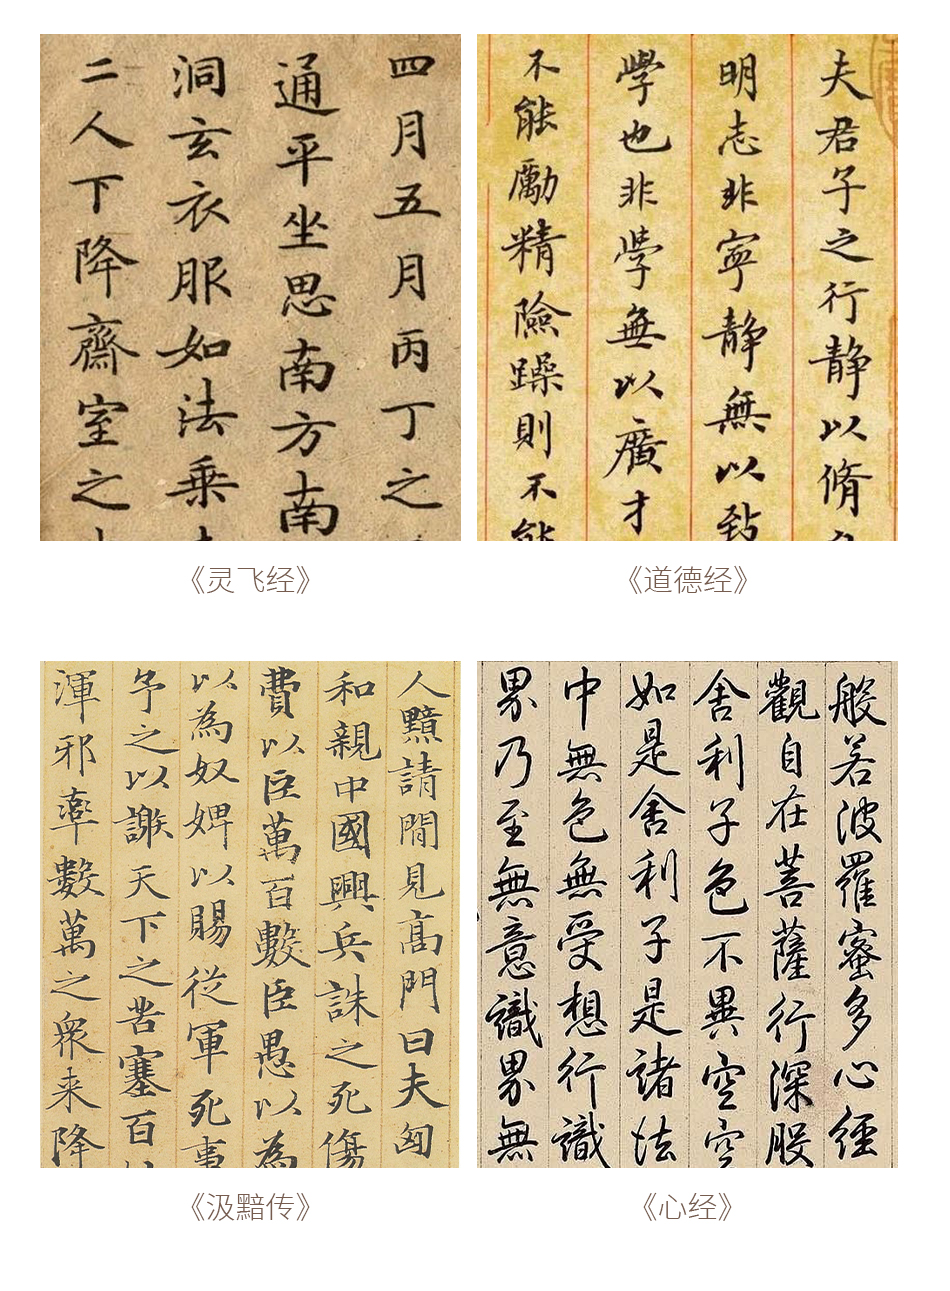 四月五月丙丁之
通平坐思南方南
洞玄衣服如法乘
二人下降齋室之
《灵飞经》
夫君子之行静以脩
明志非寧静無以致
學也非學無以廣才
不能勵精險躁則不能
《道德经》
人黥請閒見高門曰夫匈
和親中國興兵誅之死傷
費以巨萬百數臣愚以為
以為奴婢以賜從軍死事
予之以謝天下之苦塞百
渾邪率數萬之衆来降
《汲黯传》
般若波羅蜜多心經
觀自在菩薩行深般
舍利子色不異空空
如是舍利子是諸法
中無色無受想行識
界乃至無意識界無
《心经》